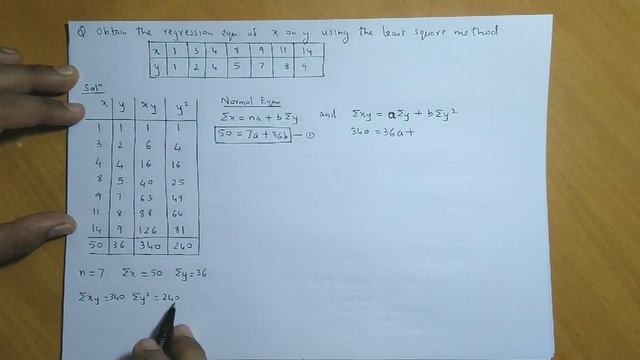 Q Obtain the regression eqn. of x on y using the least square method
x 1 3 4 8 9 11 14
y 1 2 4 5 7 8 9
Solⁿ
x y xy y²
1 1 1 1
3 2 6 4
4 4 16 16
8 5 40 25
9 7 63 49
11 8 88 64
14 9 126 81
50 36 340 240
n = 7 Σx = 50 Σy = 36
Σxy = 340 Σy² = 240
Normal Eqns
Σx = na + bΣy and Σxy = aΣy + bΣy²
50 = 7a + 36b — ①
340 = 36a +